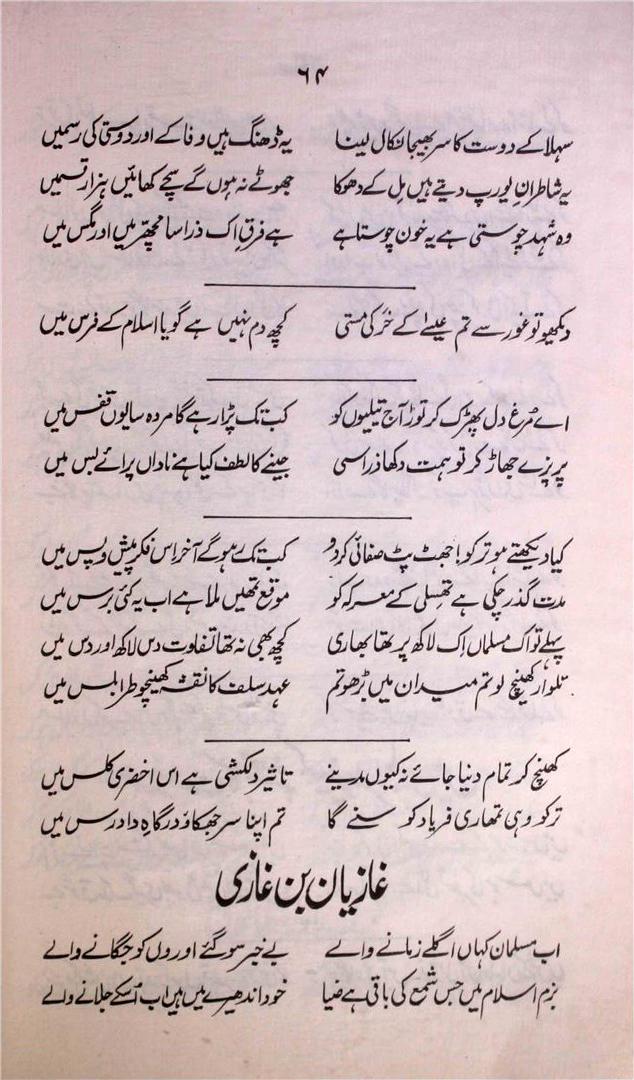 ۶۴
سہلا کے دوست کا سر بھیجا نکال لینا یہ ڈھنگ ہیں وفا کے اور دوستی کی رسمیں
یہ شاطرانِ یورپ دیتے ہیں مل کے دھوکا جھوٹے نہ ہوں گے سچے کھائیں ہزار قسمیں
وہ شہد چوستی ہے یہ خون چوستا ہے ہے فرق اک ذرا سا مچھّر میں اور مگس میں
دیکھو تو غور سے تم عیسےٰ کے خرُ کی مستی کچھ دم نہیں ہے گویا اسلام کے فرس میں
اے مُرغِ دل پھڑک کر توڑ آج تیلیوں کو کب تک پڑا رہے گا مردہ سا یوں قفس میں
پر پرزے جھاڑ کر تو ہمت دکھا ذرا سی جینے کا لطف کیا ہے ناداں پرائے بس میں
کیا دیکھتے ہو ترکو! جھٹ پٹ صفائی کر دو کب تک رہو گے آخر اس فکر پیش و پس میں
مدت گذر چکی ہے تھسلی کے معرکہ کو موقع تمھیں ملا ہے اب یہ کئی برس میں
پہلے تو اک مسلماں اِک لاکھ پر تھا بھاری کچھ بھی نہ تھا تفاوت دس لاکھ اور دس میں
تلوار کھینچ لو تم میدان میں بڑھو تم عہد سلف کا نقشہ کھینچو طرابلس میں
کھینچ کر تمام دنیا جائے نہ کیوں مدینے تاثیر دلکشی ہے اس اخضری کلس میں
ترکو وہی تمھاری فریاد کو سنے گا تم اپنا سر جھکاؤ درگاہِ دادرس میں
غازیان بن غازی
اب مسلمان کہاں اگلے زمانے والے بے خبر سو گئے اوروں کو جگانے والے
بزم اسلام میں جس شمع کی باقی ہے ضیا خود اندھیرے میں ہیں اب اُسکے جلانے والے